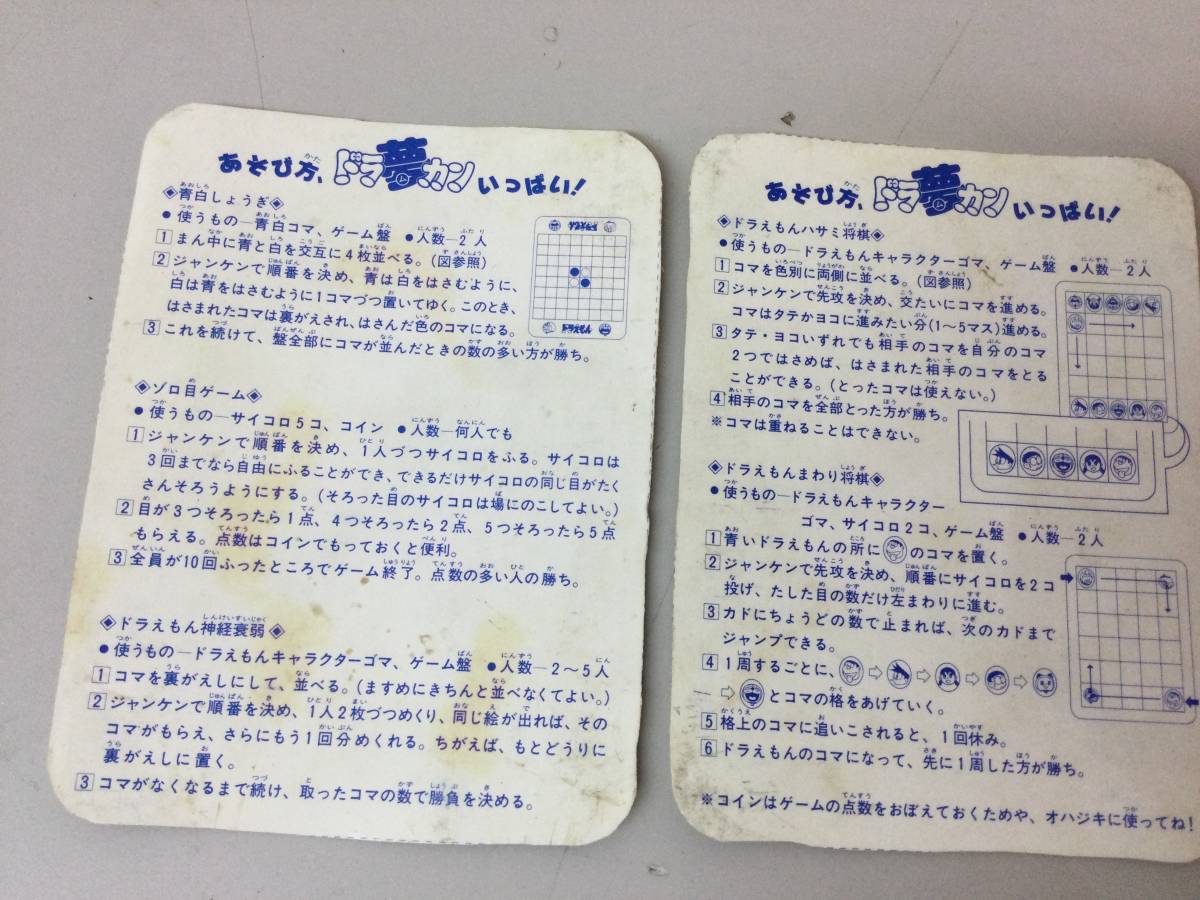 あそび方、ドラ夢カンいっぱい!
◈青白しょうぎ◈
●使うもの―青白コマ、ゲーム盤 ●人数―2人
1 まん中に青と白を交互に4枚並べる。(図参照)
2 ジャンケンで順番を決め、青は白をはさむように、
白は青をはさむように1コマづつ置いてゆく。このとき、
はさまれたコマは裏がえされ、はさんだ色のコマになる。
3 これを続けて、盤全部にコマが並んだときの数の多い方が勝ち。
ドラえもん
◈ゾロ目ゲーム◈
●使うもの―サイコロ5コ、コイン ●人数―何人でも
1 ジャンケンで順番を決め、1人づつサイコロをふる。サイコロは
3回までなら自由にふることができ、できるだけサイコロの同じ目がたく
さんそろうようにする。(そろった目のサイコロは場にのこしてよい。)
2 目が3つそろったら1点、4つそろったら2点、5つそろったら5点
もらえる。点数はコインでもっておくと便利。
3 全員が10回ふったところでゲーム終了。点数の多い人の勝ち。
◈ドラえもん神経衰弱◈
●使うもの―ドラえもんキャラクターゴマ、ゲーム盤 ●人数―2〜5人
1 コマを裏がえしにして、並べる。(ますめにきちんと並べなくてよい。)
2 ジャンケンで順番を決め、1人2枚づつめくり、同じ絵が出れば、その
コマがもらえ、さらにもう1回分めくれる。ちがえば、もとどうりに
裏がえしに置く。
3 コマがなくなるまで続け、取ったコマの数で勝負を決める。
あそび方、ドラ夢カンいっぱい!
◈ドラえもんハサミ将棋◈
●使うもの―ドラえもんキャラクターゴマ、ゲーム盤 ●人数―2人
1 コマを色別に両側に並べる。(図参照)
2 ジャンケンで先攻を決め、交たいにコマを進める。
コマはタテかヨコに進みたい分(1〜5マス)進める。
3 タテ・ヨコいずれでも相手のコマを自分のコマ
2つではさめば、はさまれた相手のコマをとる
ことができる。(とったコマは使えない。)
4 相手のコマを全部とった方が勝ち。
※コマは重ねることはできない。
◈ドラえもんまわり将棋◈
●使うもの―ドラえもんキャラクター
ゴマ、サイコロ2コ、ゲーム盤 ●人数―2人
1 青いドラえもんの所に のコマを置く。
2 ジャンケンで先攻を決め、順番にサイコロを2コ
投げ、たした目の数だけ左まわりに進む。
3 カドにちょうどの数で止まれば、次のカドまで
ジャンプできる。
4 1周するごとに、 ⇨ ⇨ ⇨ ⇨
⇨ とコマの格をあげていく。
5 格上のコマに追いこされると、1回休み。
6 ドラえもんのコマになって、先に1周した方が勝ち。
※コインはゲームの点数をおぼえておくためや、オハジキに使ってね!